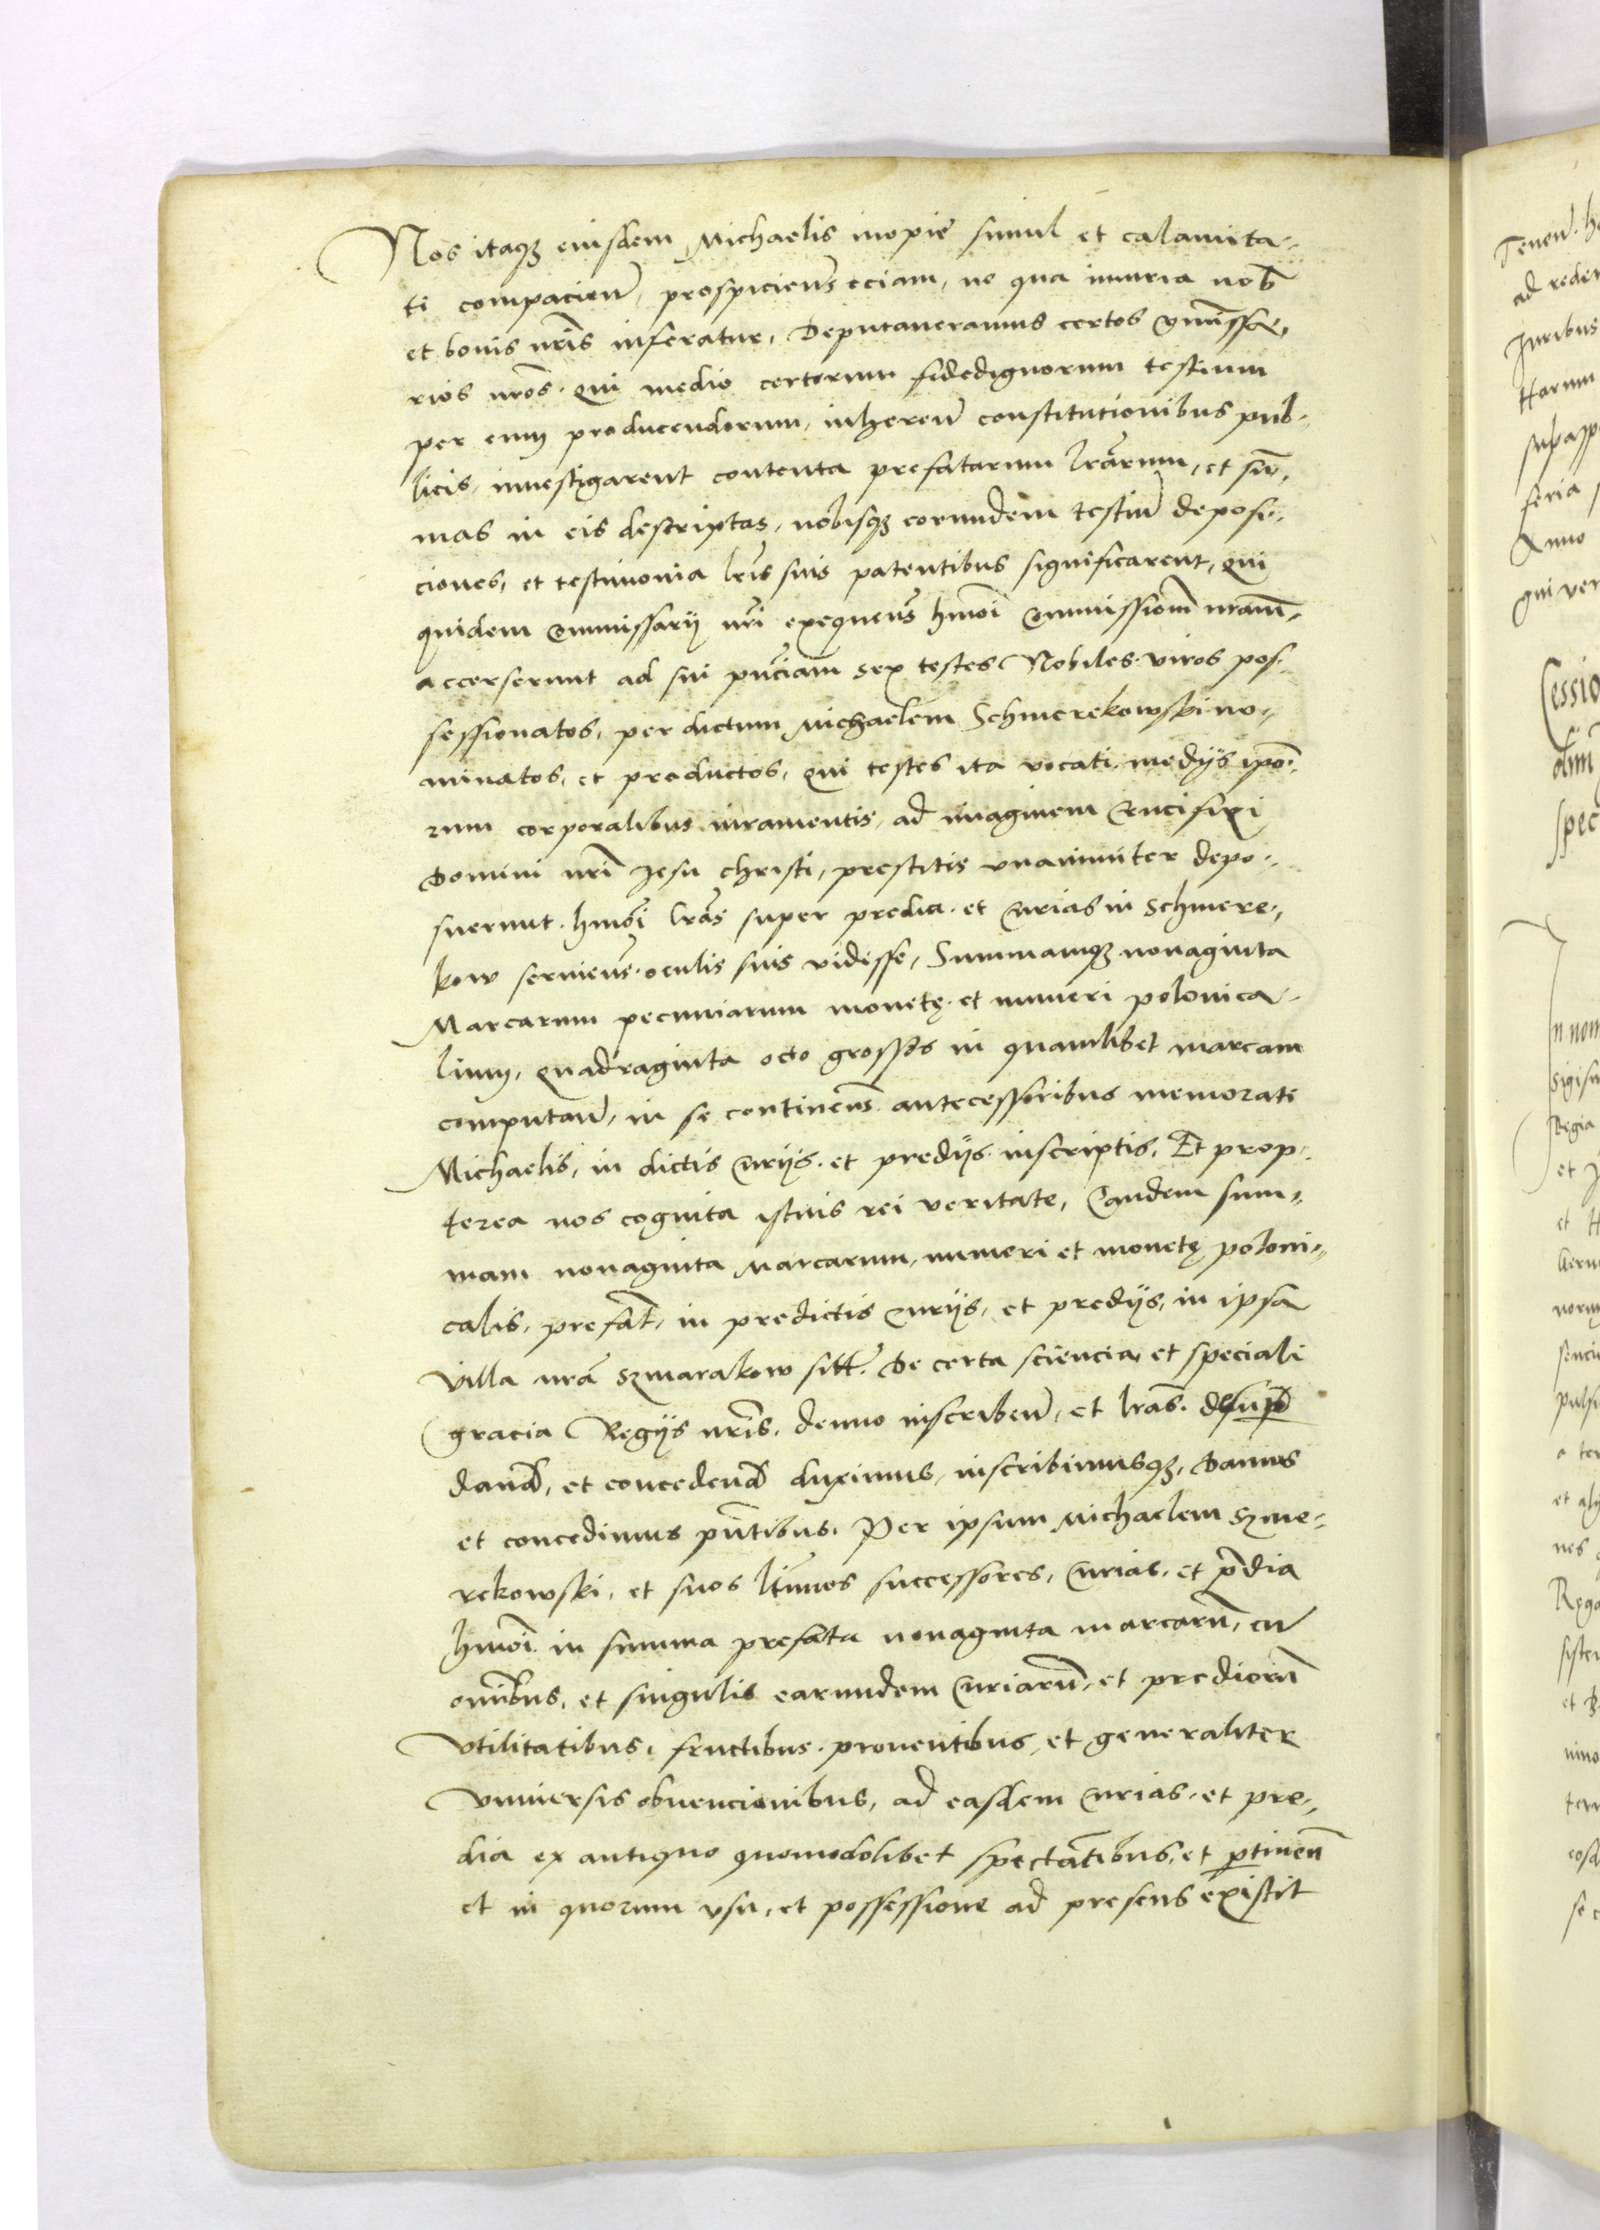 Nos itaqз eiusdem Michaelis inopie simul et calamita-
ti compacieñ, prospicienš eciam, ne qua iniuria nob̄
et bonis nr̄is inferatur, Deputaveramus certos Cōmissa-
rios nr̄os. qui medio certorum fidedignorum testium
per eum producendorum, inhereñ constitutionibus pub-
licis, investigarent contenta prefatarum lr̄arum, et sū-
mas in eis descriptas, nobisqз eorundem testiū deposi-
ciones, et testimonia lr̄is suis patentibus significarent, qui
quidem Commissarij nr̄i exequenš hmōi Commissionē nrām,
accerserunt ad sui pn̄ciam sex testes Nobiles viros pos-
sessionatos, per dictum Michaelem Schmerekowski no-
minatos, et productos, qui testes ita vocati, medijs ipōr-
rum corporalibus iuramentis, ad imaginem Crucifixi
Domini nr̄i Jesu christi, prestitis unanimiter depo-
suerunt. hmōi lrās super predia. et Curias in Schmere-
kow servienš oculis suis vidisse, Summamqз nonaginta
Marcarum pecuniarum monetę et numeri polonica-
lium, quadraginta octo grossos in quamlibet marcam
computañ, in se continenš antecessoribus memorati
Michaelis, in dictis Curijs. et predijs inscriptis. Et prop-
terea nos cognita istius rei veritate, Eandem sum-
mam nonaginta Marcarum, numeri et monetę poloni-
calis, prefat̄, in predictis Curijs, et predijs, in ipsa
Villa nrā Szmarakow sitt̄. De certa sciencia et speciali
gracia Regijs nr̄is. denuo inscribeñ, et lrās. desup̄
danđ, et concedenđ duximus, inscribimusqз, Damus
et concedimus pn̄tibus. Per ipsum Michaelem Szme-
rekowski, et suos ltīmos successores, Curias, et p̄dia
hmōi in summa prefata nonaginta marcarū, cū
omībus, et singulis earundem Curiarū, et prediorū
Vtilitatibus, fructibus. proventibus, et generaliter
Vniversis obvencionibus, ad easdem Curias, et pre-
dia ex antiquo quomodolibet spectātibus, et ptinen̄
et in quorum vsu, et possessione ad presens existit